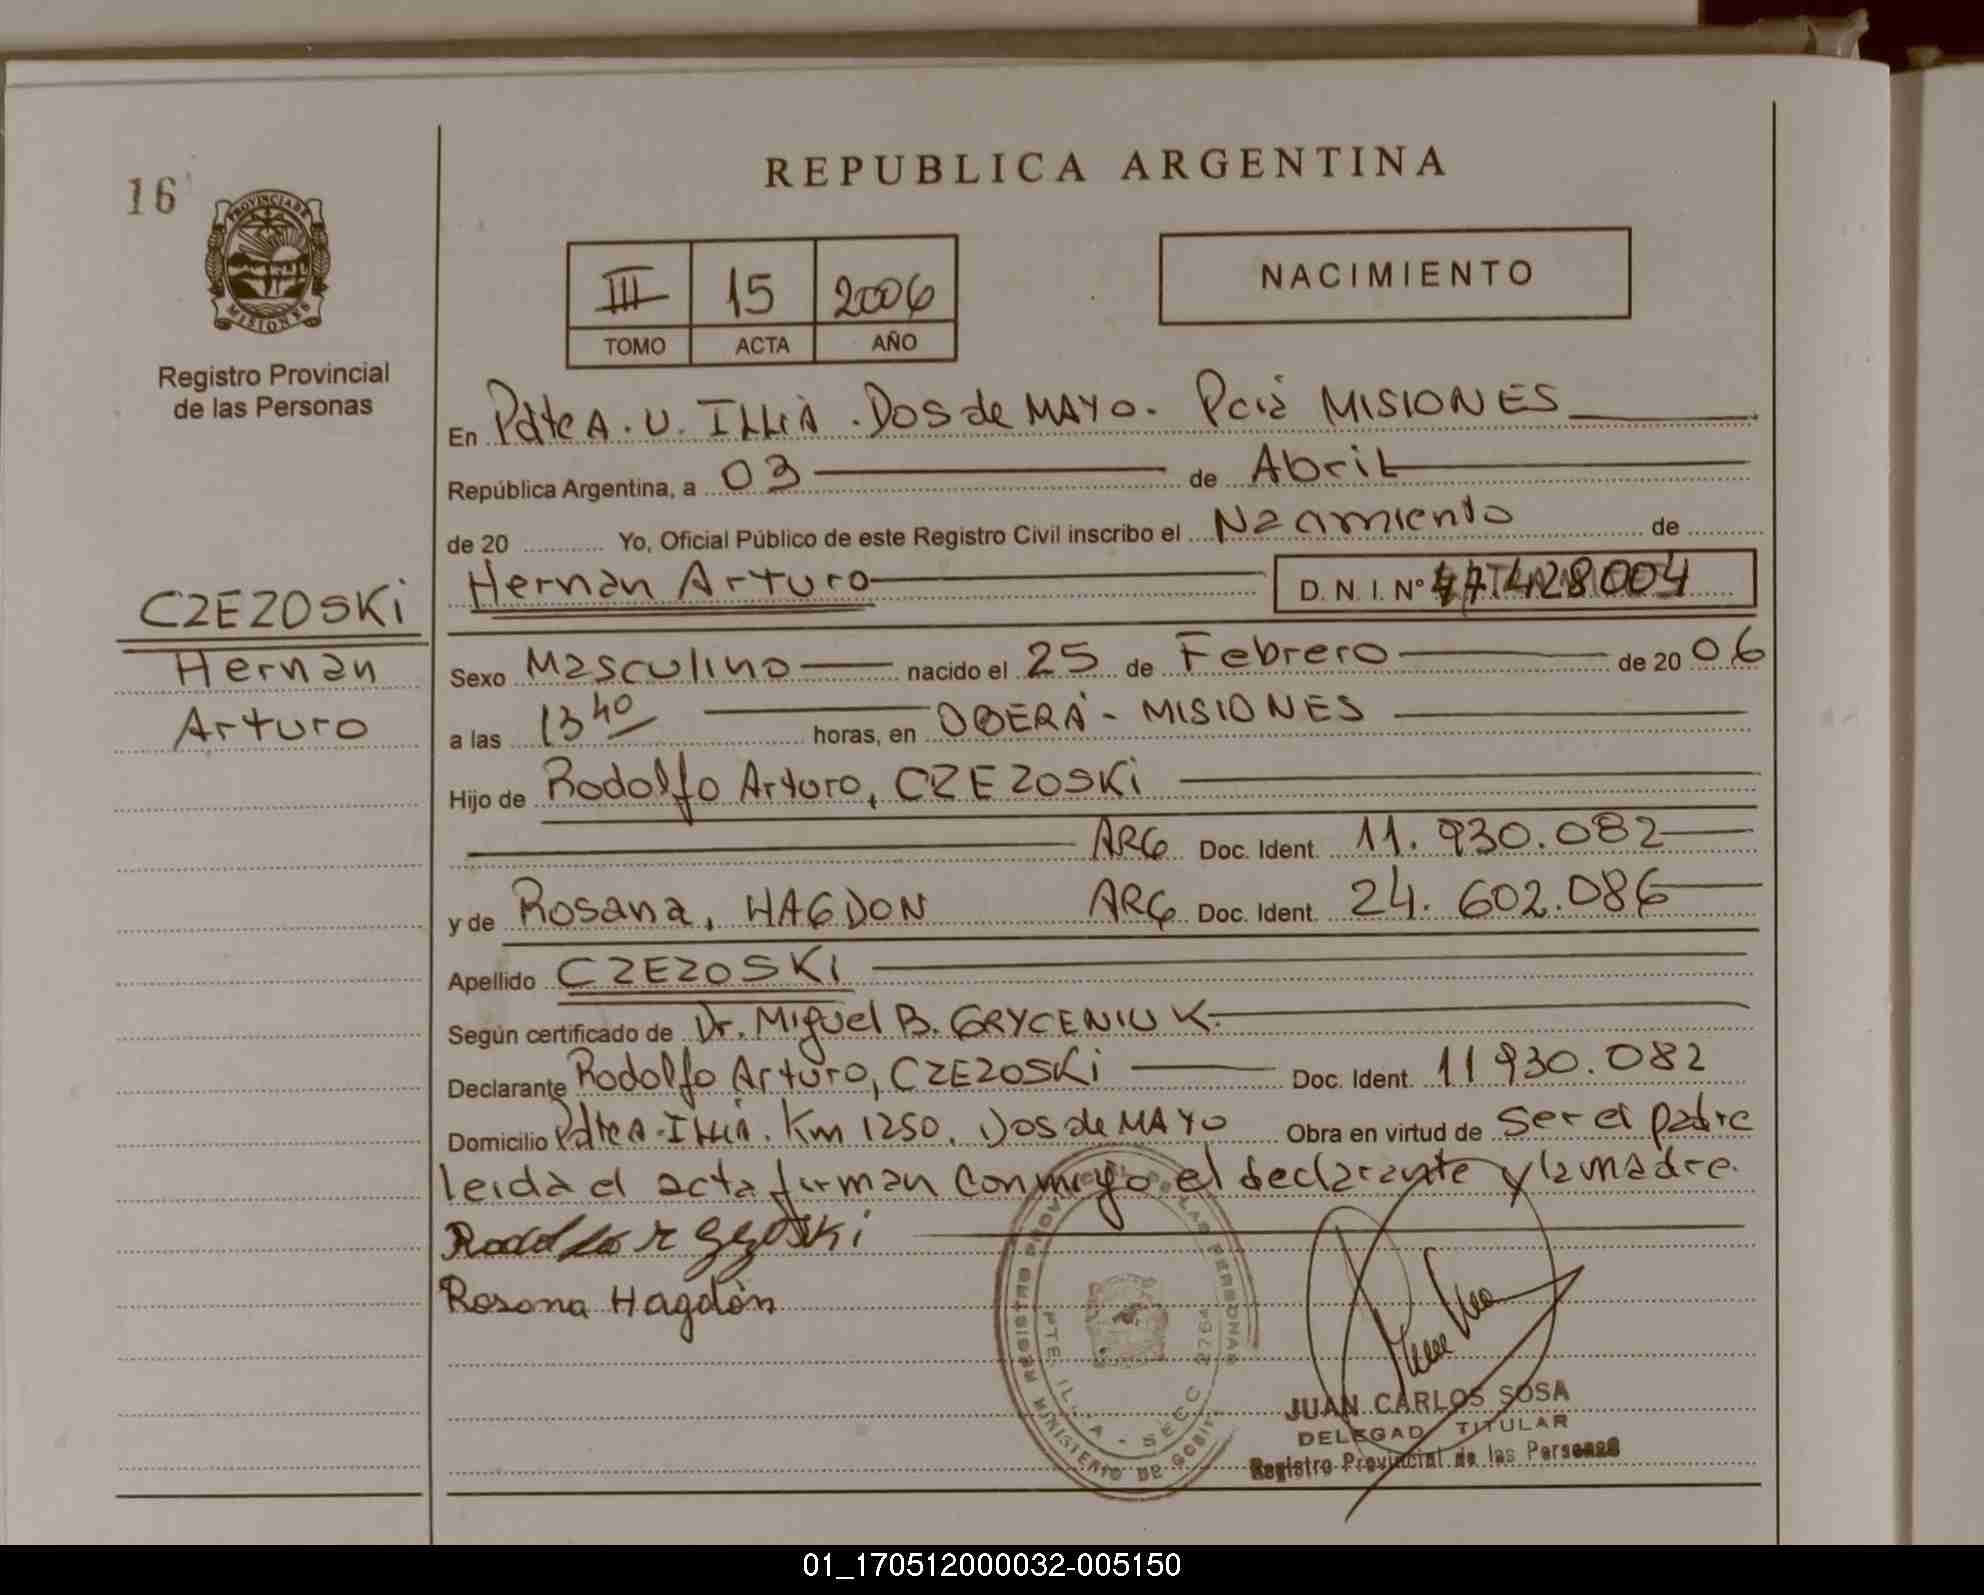 REPUBLICA ARGENTINA
16
PROVINCIA DE
MISIONES
Registro Provincial
de las Personas
III 15 2006
TOMO ACTA AÑO
NACIMIENTO
En Pdte A. U. ILLIA . Dos de MAYO. Pcia MISIONES
República Argentina, a 03 de Abril
de 20 Yo, Oficial Público de este Registro Civil inscribo el Nacimiento de
Hernan Arturo D. N. I. Nº 47428004
CZEZOSKi
Hernan
Arturo
Sexo Masculino nacido el 25 de Febrero de 20 06
a las 13 40 horas, en OBERÁ - MISIONES
Hijo de Rodolfo Arturo, CZEZOSKi
ARG Doc. Ident. 11.930.082
y de Rosana, HAGDON ARG Doc. Ident. 24.602.086
Apellido CZEZOSKI
Según certificado de Dr. Miguel B. GRYCENIUK.
Declarante Rodolfo Arturo, CZEZOSKi Doc. Ident. 11930.082
Domicilio Pdte A. ILLIA. Km 1250. Dos de MAYO Obra en virtud de ser el padre
leida el acta firman conmigo el declarante y la madre.
Rodolfo
Rosana Hagdón
REGISTRO PROVINCIAL DE LAS PERSONAS
MINISTERIO DE
PTE. ILLIA - SECC 2764
JUAN CARLOS SOSA
DELEGADO TITULAR
Registro Provincial de las Personas
01_170512000032-005150